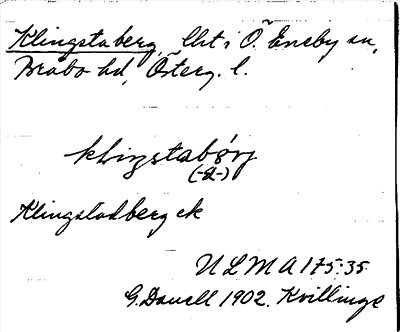 Klingstaberg, lht i Ö. Eneby sn,
Bråbo hd, Österg. l.
klingstabörj
(-a-)
Klingstadberg ek
ULMA 175:35
G. Danell 1902. Kvillinge